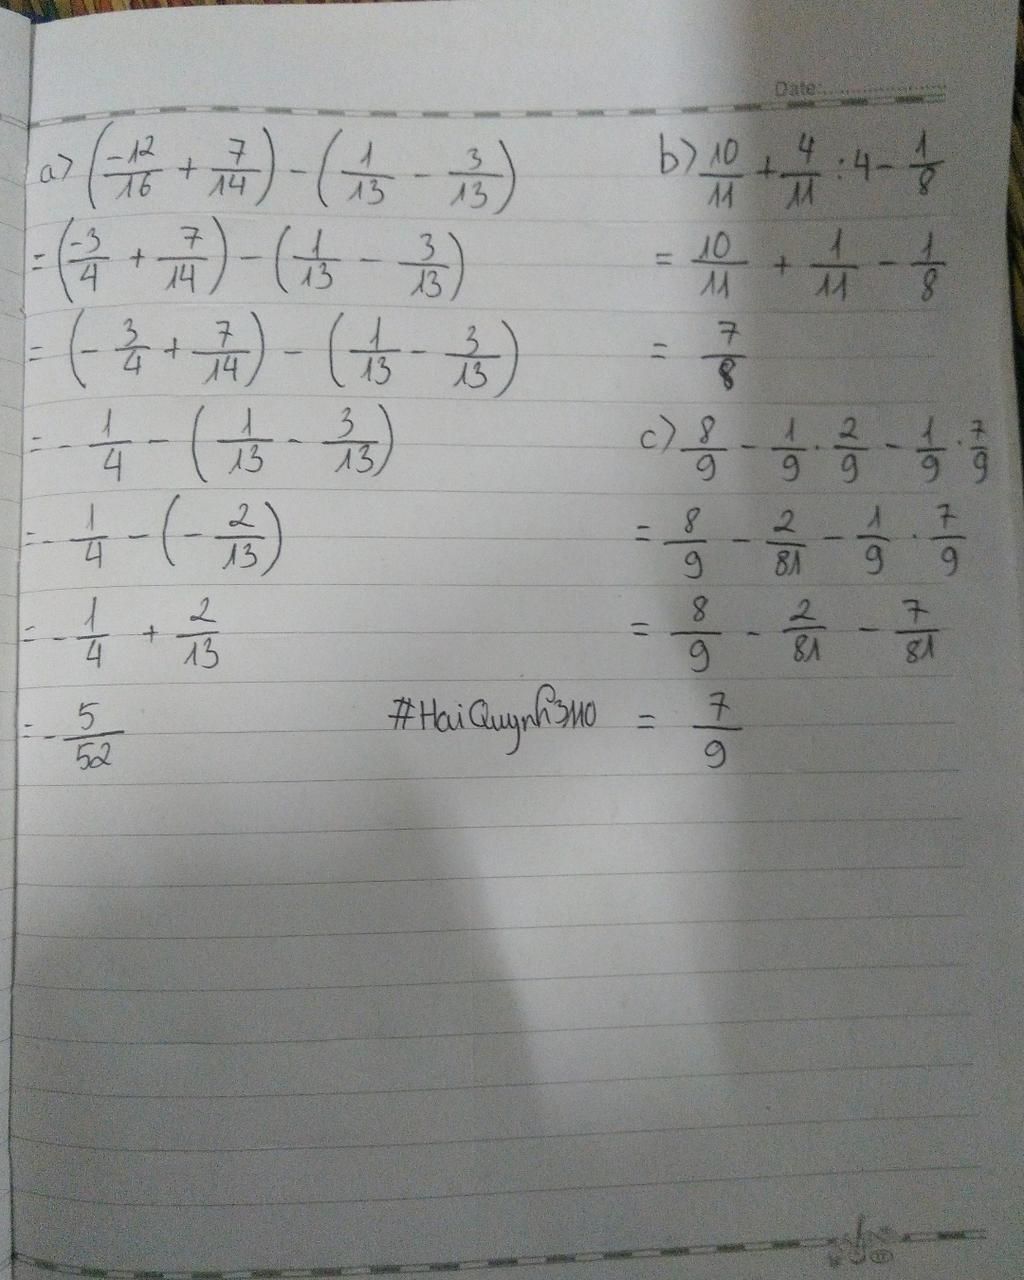 Date:
a) (-12/16 + 7/14) - (1/13 - 3/13)
= (-3/4 + 7/14) - (1/13 - 3/13)
= (- 3/4 + 7/14) - (1/13 - 3/13)
= - 1/4 - (1/13 - 3/13)
= - 1/4 - (- 2/13)
= - 1/4 + 2/13
= - 5/52
#HaiQuynh3110
b) 10/11 + 4/11 : 4 - 1/8
= 10/11 + 1/11 - 1/8
= 7/8
c) 8/9 - 1/9 . 2/9 - 1/9 . 7/9
= 8/9 - 2/81 - 1/9 . 7/9
= 8/9 - 2/81 - 7/81
= 7/9